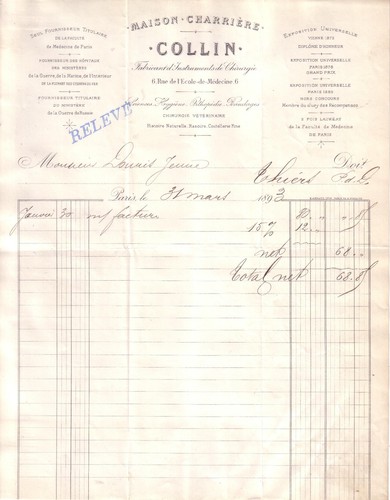 SEUL FOURNISSEUR TITULAIRE
DE LA FACULTÉ
de Médecine de Paris
FOURNISSEUR DES HÔPITAUX
DES MINISTÈRES
de la Guerre, de la Marine, de l'Intérieur
FOURNISSEUR TITULAIRE
DU MINISTÈRE
de la Guerre de Russie
RELEVÉ
MAISON-CHARRIÈRE
COLLIN
Fabricant d'Instruments de Chirurgie
6, Rue de l'Ecole-de-Médecine, 6
CHIRURGIE VÉTÉRINAIRE
Histoire Naturelle, Rasoirs, Coutellerie Fine
EXPOSITION UNIVERSELLE
VIENNE 1873
DIPLÔME D'HONNEUR
EXPOSITION UNIVERSELLE
PARIS 1878
GRAND PRIX
EXPOSITION UNIVERSELLE
PARIS 1889
HORS CONCOURS
Membre du Jury des Récompenses
5 FOIS LAURÉAT
de la Faculté de Médecine
DE PARIS
Monsieur Jeune Doit
Thiers P. d. D.
Paris, le 31 mars 1893
Janvier 30 m/ facture 80 " " 85
15% 12 "
net 68 "
Total net 68.85